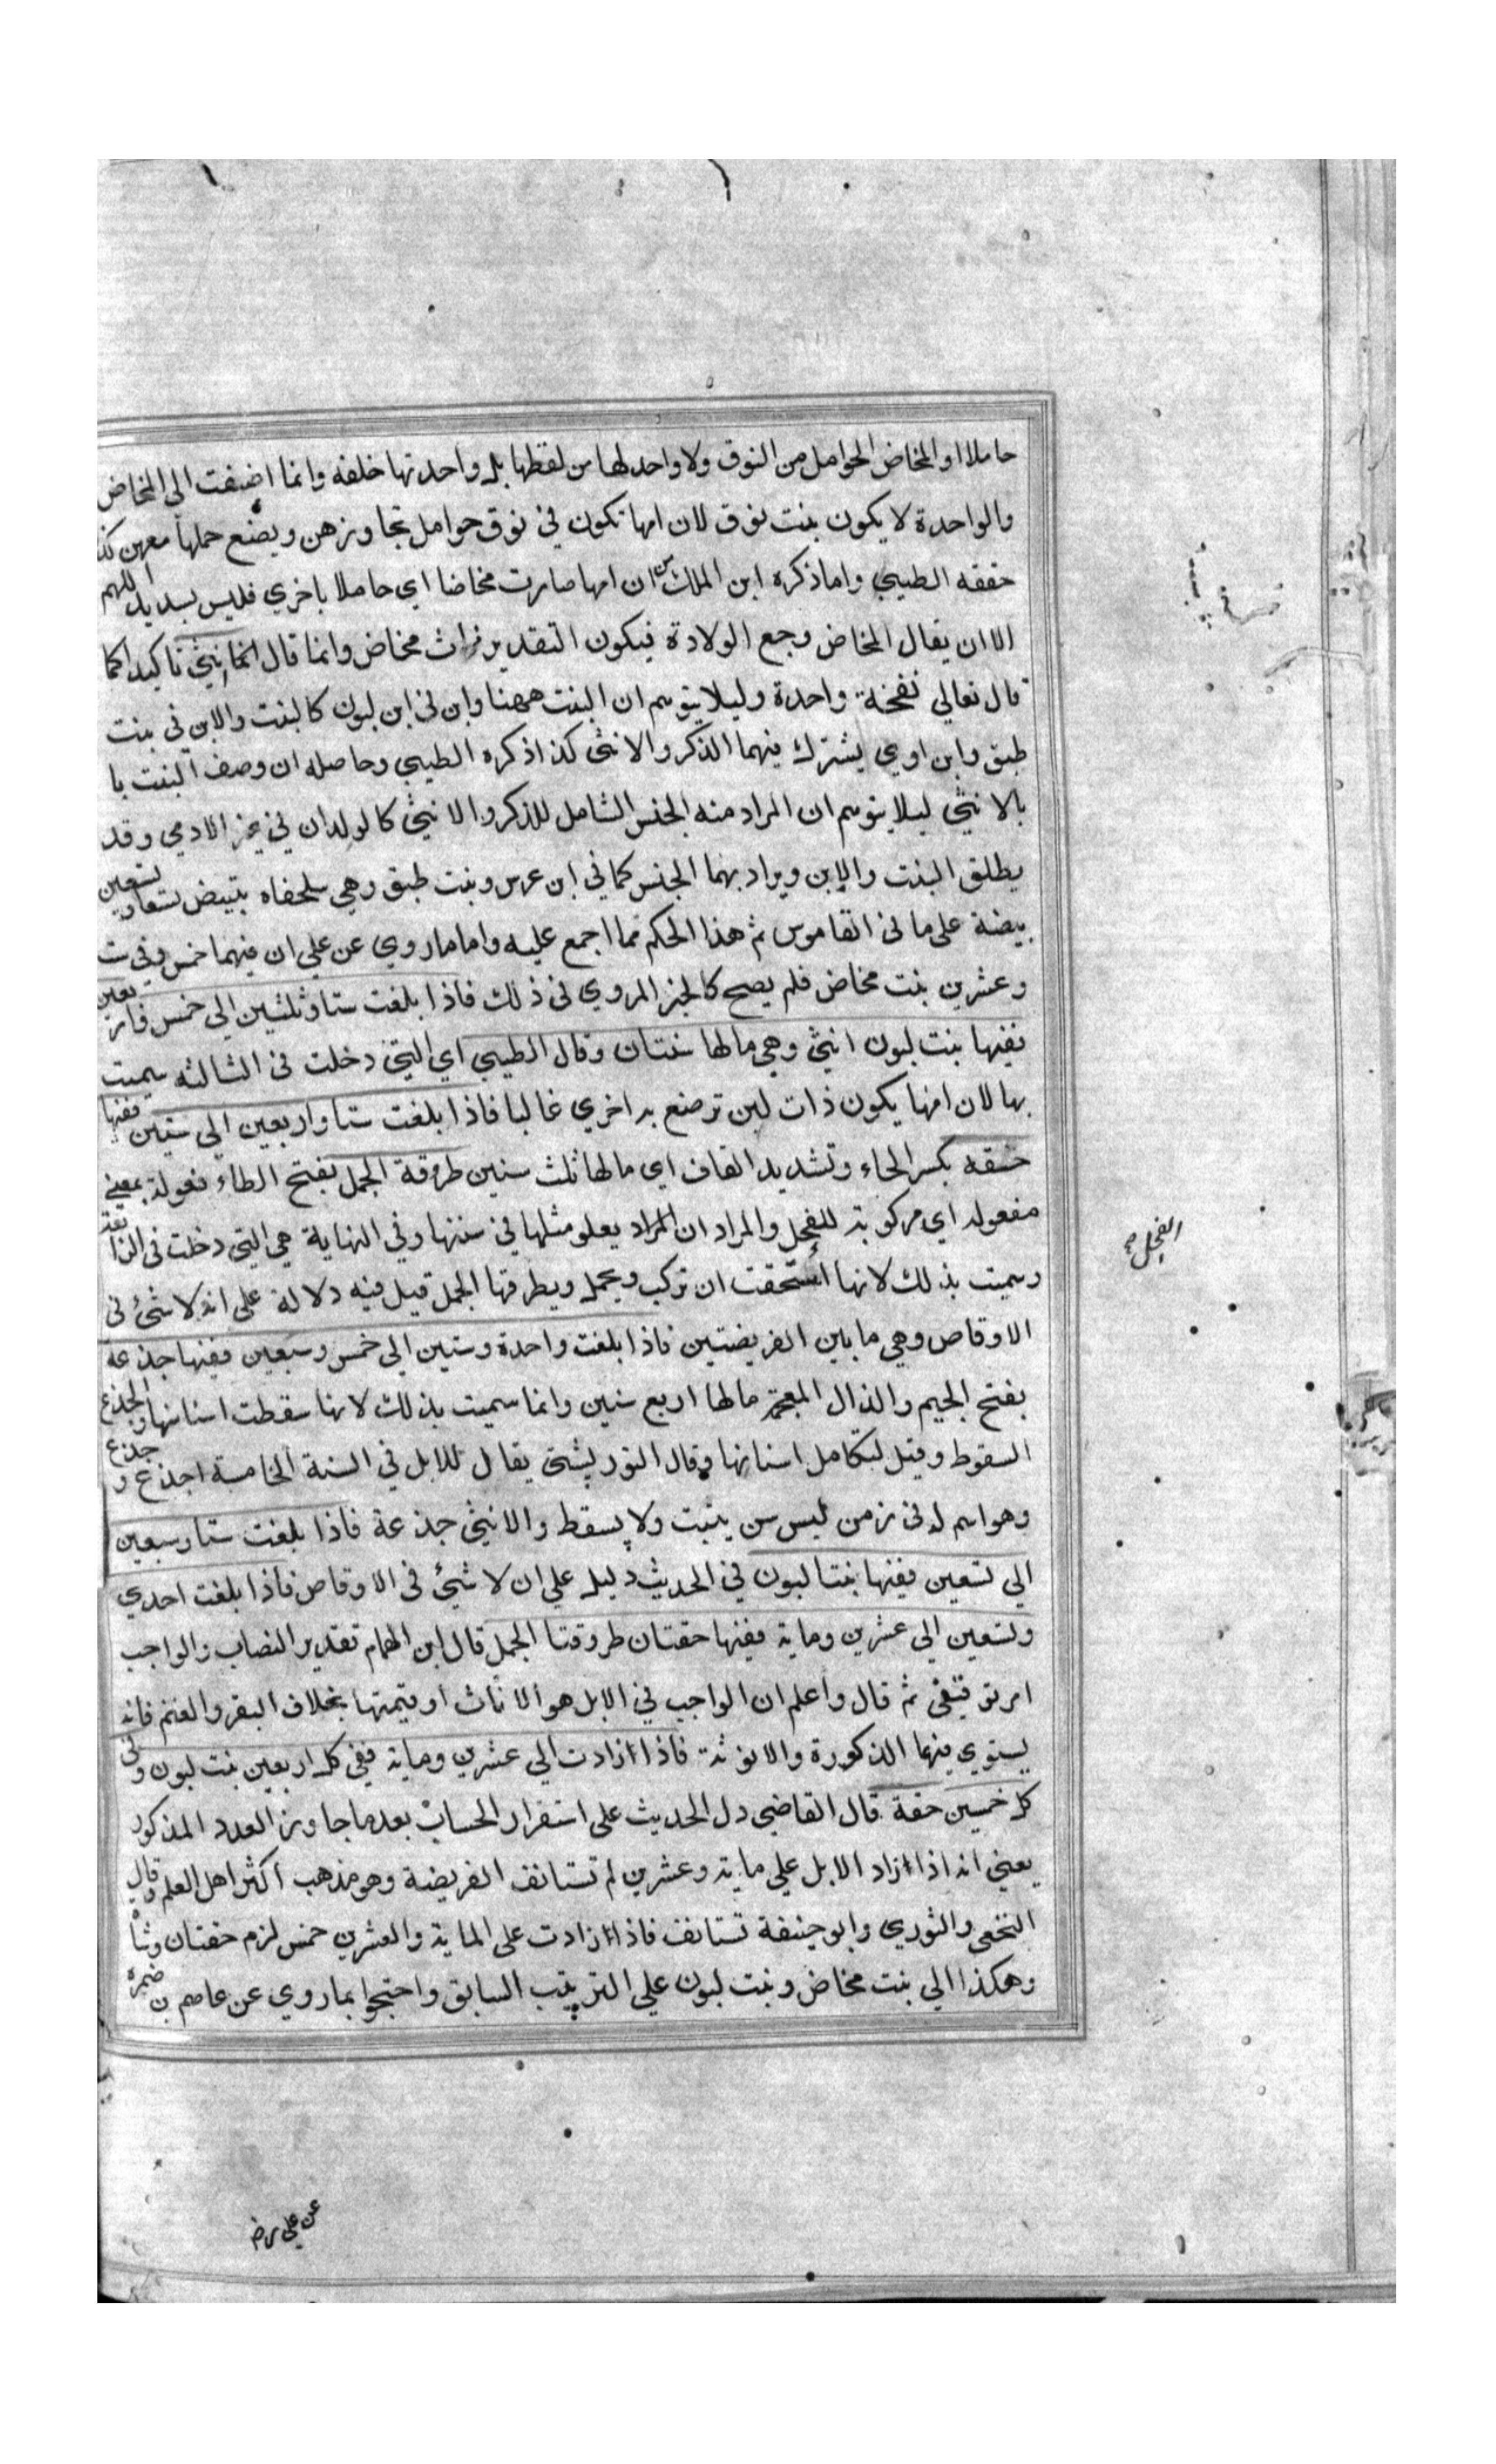 حاملا او المخاض الحوامل من النوق ولا واحد لها من لفظها بل واحدتها خلفه وانما اضيفت الي المخاض
والواحدة لا يكون بنت نوق لان امها تكون في نوق حوامل تجاورهن ويضع حملها معهن كذا
حققه الطيبي واما ذكره ابن الملك من ان امها صارت مخاضا اي حاملا باخري فليس بسديد اللهم
الا ان يقال المخاض وجع الولادة فيكون التقدير ذات مخاض وانما قال انثي تاكيدا كما
قال تعالي نفخة واحدة وليلا يتوهم ان البنت ههنا وابن في ابن لبون كالبنت والابن في بنت
طبق وابن اوي يشترك فيهما الذكر والانثي كذا ذكره الطيبي وحاصله ان وصف البنت با
بالانثي ليلا يتوهم ان المراد منه الجنس الشامل للذكر والانثي كالولدان في غير الادمي وقد
يطلق البنت والابن ويراد بهما الجنس كما في ابن عرس وبنت طبق وهي سلحفاه تبيض تسعا وتسعين
بيضة علي ما في القاموس ثم هذا الحكم مما اجمع عليه واما ما روي عن علي ان فيهما خمس وفي ست
وعشرين بنت مخاض فلم يصح كالخبر المروي في ذلك فاذا بلغت ستا وثلثين الي خمس واربعين
ففيها بنت لبون انثي وهي ما لها سنتان وقال الطيبي اي التي دخلت في الثالثه سميت
بها لان امها يكون ذات لبن ترضع به اخري غالبا فاذا بلغت ستا واربعين الي ستين ففيها
حقه بكسر الحاء وتشديد القاف اي ما لها ثلث سنين طروقة الجمل بفتح الطاء فعولة بمعني
مفعوله اي مركوبة للفحل والمراد ان المراد يعلو مثلها في سنها وفي النهاية هي التي دخلت في الرابعة
وسميت بذلك لانها استحقت ان تركب ويحمل ويطرقها الجمل قيل فيه دلالة علي انه لا شئ في
الاوقاص وهي ما بين الفريضتين فاذا بلغت واحدة وستين الي خمس وسبعين ففيها جذعة
بفتح الجيم والذال المعجمة ما لها اربع سنين وانما سميت بذلك لانها سقطت اسنانها والجذع
السقوط وقيل لتكامل اسنانها وقال التوربشتي يقال للابل في السنة الخامسة اجذع و جذع
وهو اسم له في زمن ليس سن ينبت ولا يسقط والانثي جذعة فاذا بلغت ستا وسبعين
الي تسعين ففيها بنتا لبون في الحديث دليل علي ان لا شئ في الاوقاص فاذا بلغت احدي
وتسعين الي عشرين وماية ففيها حقتان طروقتا الجمل قال ابن الهمام تقدير النصاب والواجب
امر توقيفي ثم قال واعلم ان الواجب في الابل هو الاناث او قيمتها بخلاف البقر والغنم فانه
يستوي فيهما الذكورة والانوثة فاذا ازادت الي عشرين وماية ففي كل اربعين بنت لبون وفي
كل خمسين حقة قال القاضي دل الحديث علي استقرار الحساب بعد ما جاوز العدد المذكور
يعني انه اذا ازاد الابل علي ماية وعشرين لم تستانف الفريضة وهو مذهب اكثر اهل العلم وقال
النخعي والثوري وابو حنيفة تستانف فاذا ازادت علي الماية والعشرين خمس لزم حقتان وشا
وهكذا الي بنت مخاض وبنت لبون علي الترتيب السابق واحتجوا بما روي عن عاصم بن ضمرة
الفحل صح
عن علي رض